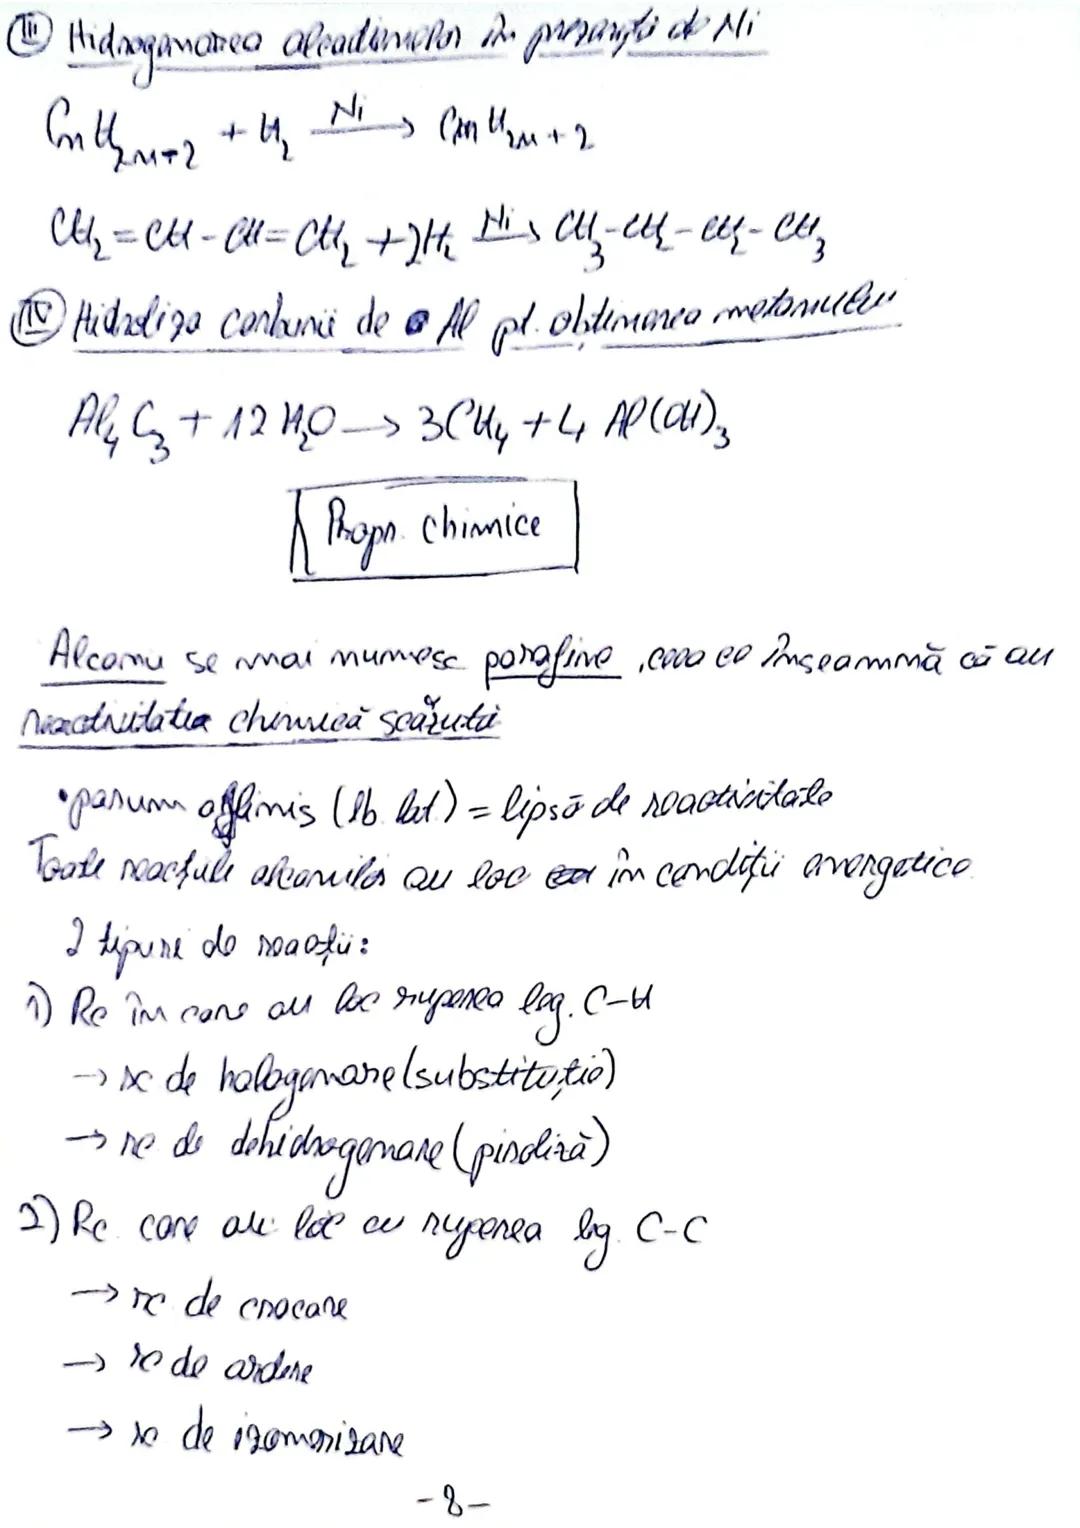 III Hidrogenarea alcadienelor în prezența de Ni
CnH2n+2 + H2 Ni→ CnH2n+2
CH2=CH-CH=CH2 + 2H2 Ni→ CH3-CH2-CH2-CH3
IV Hidroliza carburii de Al pt. obtinerea metanului
Al4C3 + 12H2O → 3CH4 + 4Al(OH)3
Propr. chimice
Alcanii se mai numesc parafine, ceea ce înseamnă că au
reactivitatea chimică scăzută
•parum affinis (lb. lat.) = lipsă de reactivitate
Toate reacțiile alcanilor au loc în condiții energetice.
2 tipuri de reacții:
1) Rc în care au loc ruperea leg. C-H
→ rc de halogenare (substituție)
→ rc de dehidrogenare (piroliză)
2) Rc. care au loc cu ruperea leg. C-C
→ rc de crocare
→ rc de ardere
→ rc de izomerizare
-8-